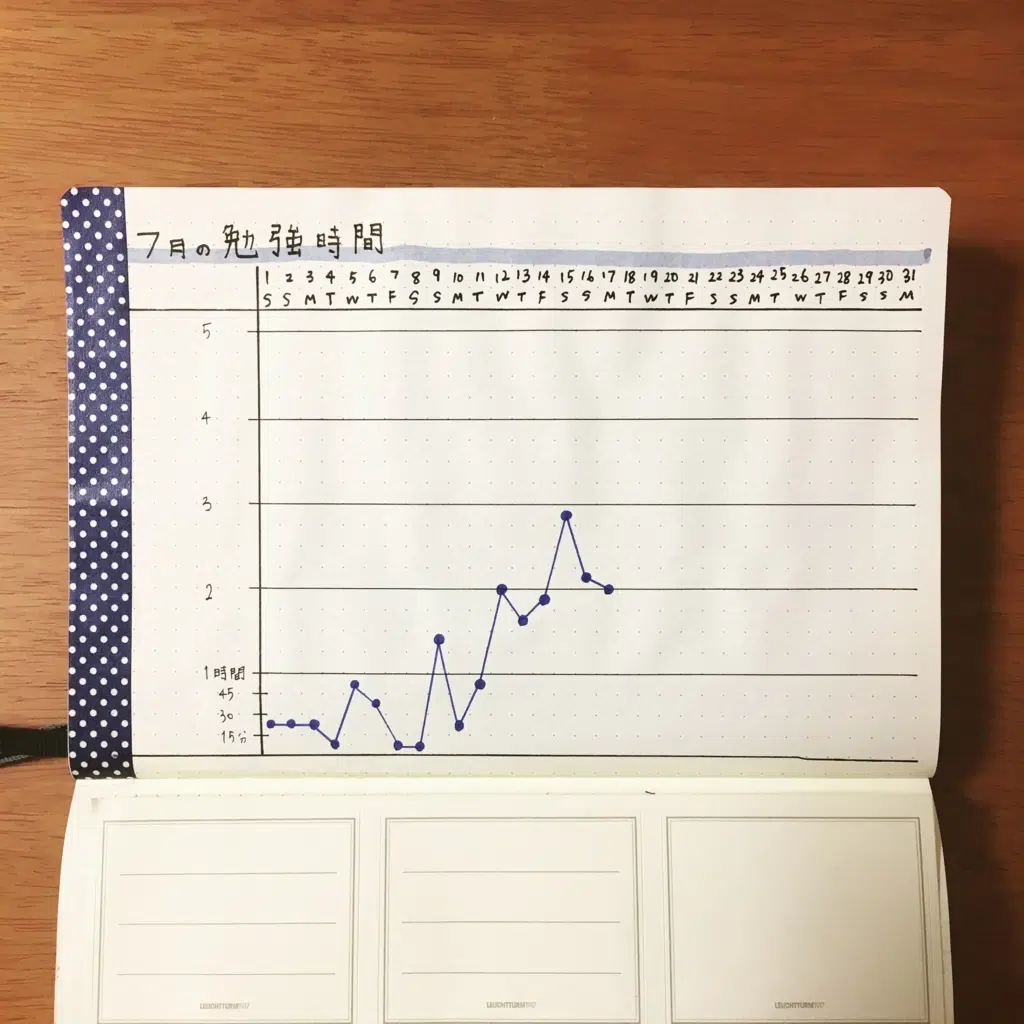 7月の勉強時間
1 2 3 4 5 6 7 8 9 10 11 12 13 14 15 16 17 18 19 20 21 22 23 24 25 26 27 28 29 30 31
S S M T W T F S S M T W T F S S M T W T F S S M T W T F S S M
5
4
3
2
1時間
45
30
15分
LEUCHTTURM1917 LEUCHTTURM1917 LEUCHTTURM1917